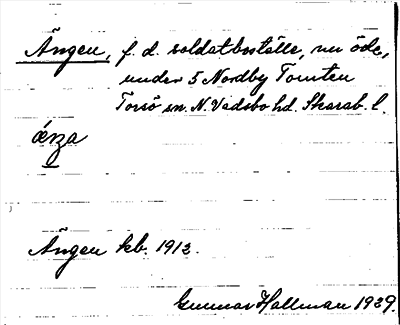 Ängen, f. d. soldatboställe, nu öde,
under 5 Nordby Tomten
Torsö sn. N. Vadsbo hd. Skarab. l.
ǽŋa
Ängen kb. 1912.
Gunnar Hallman 1929.